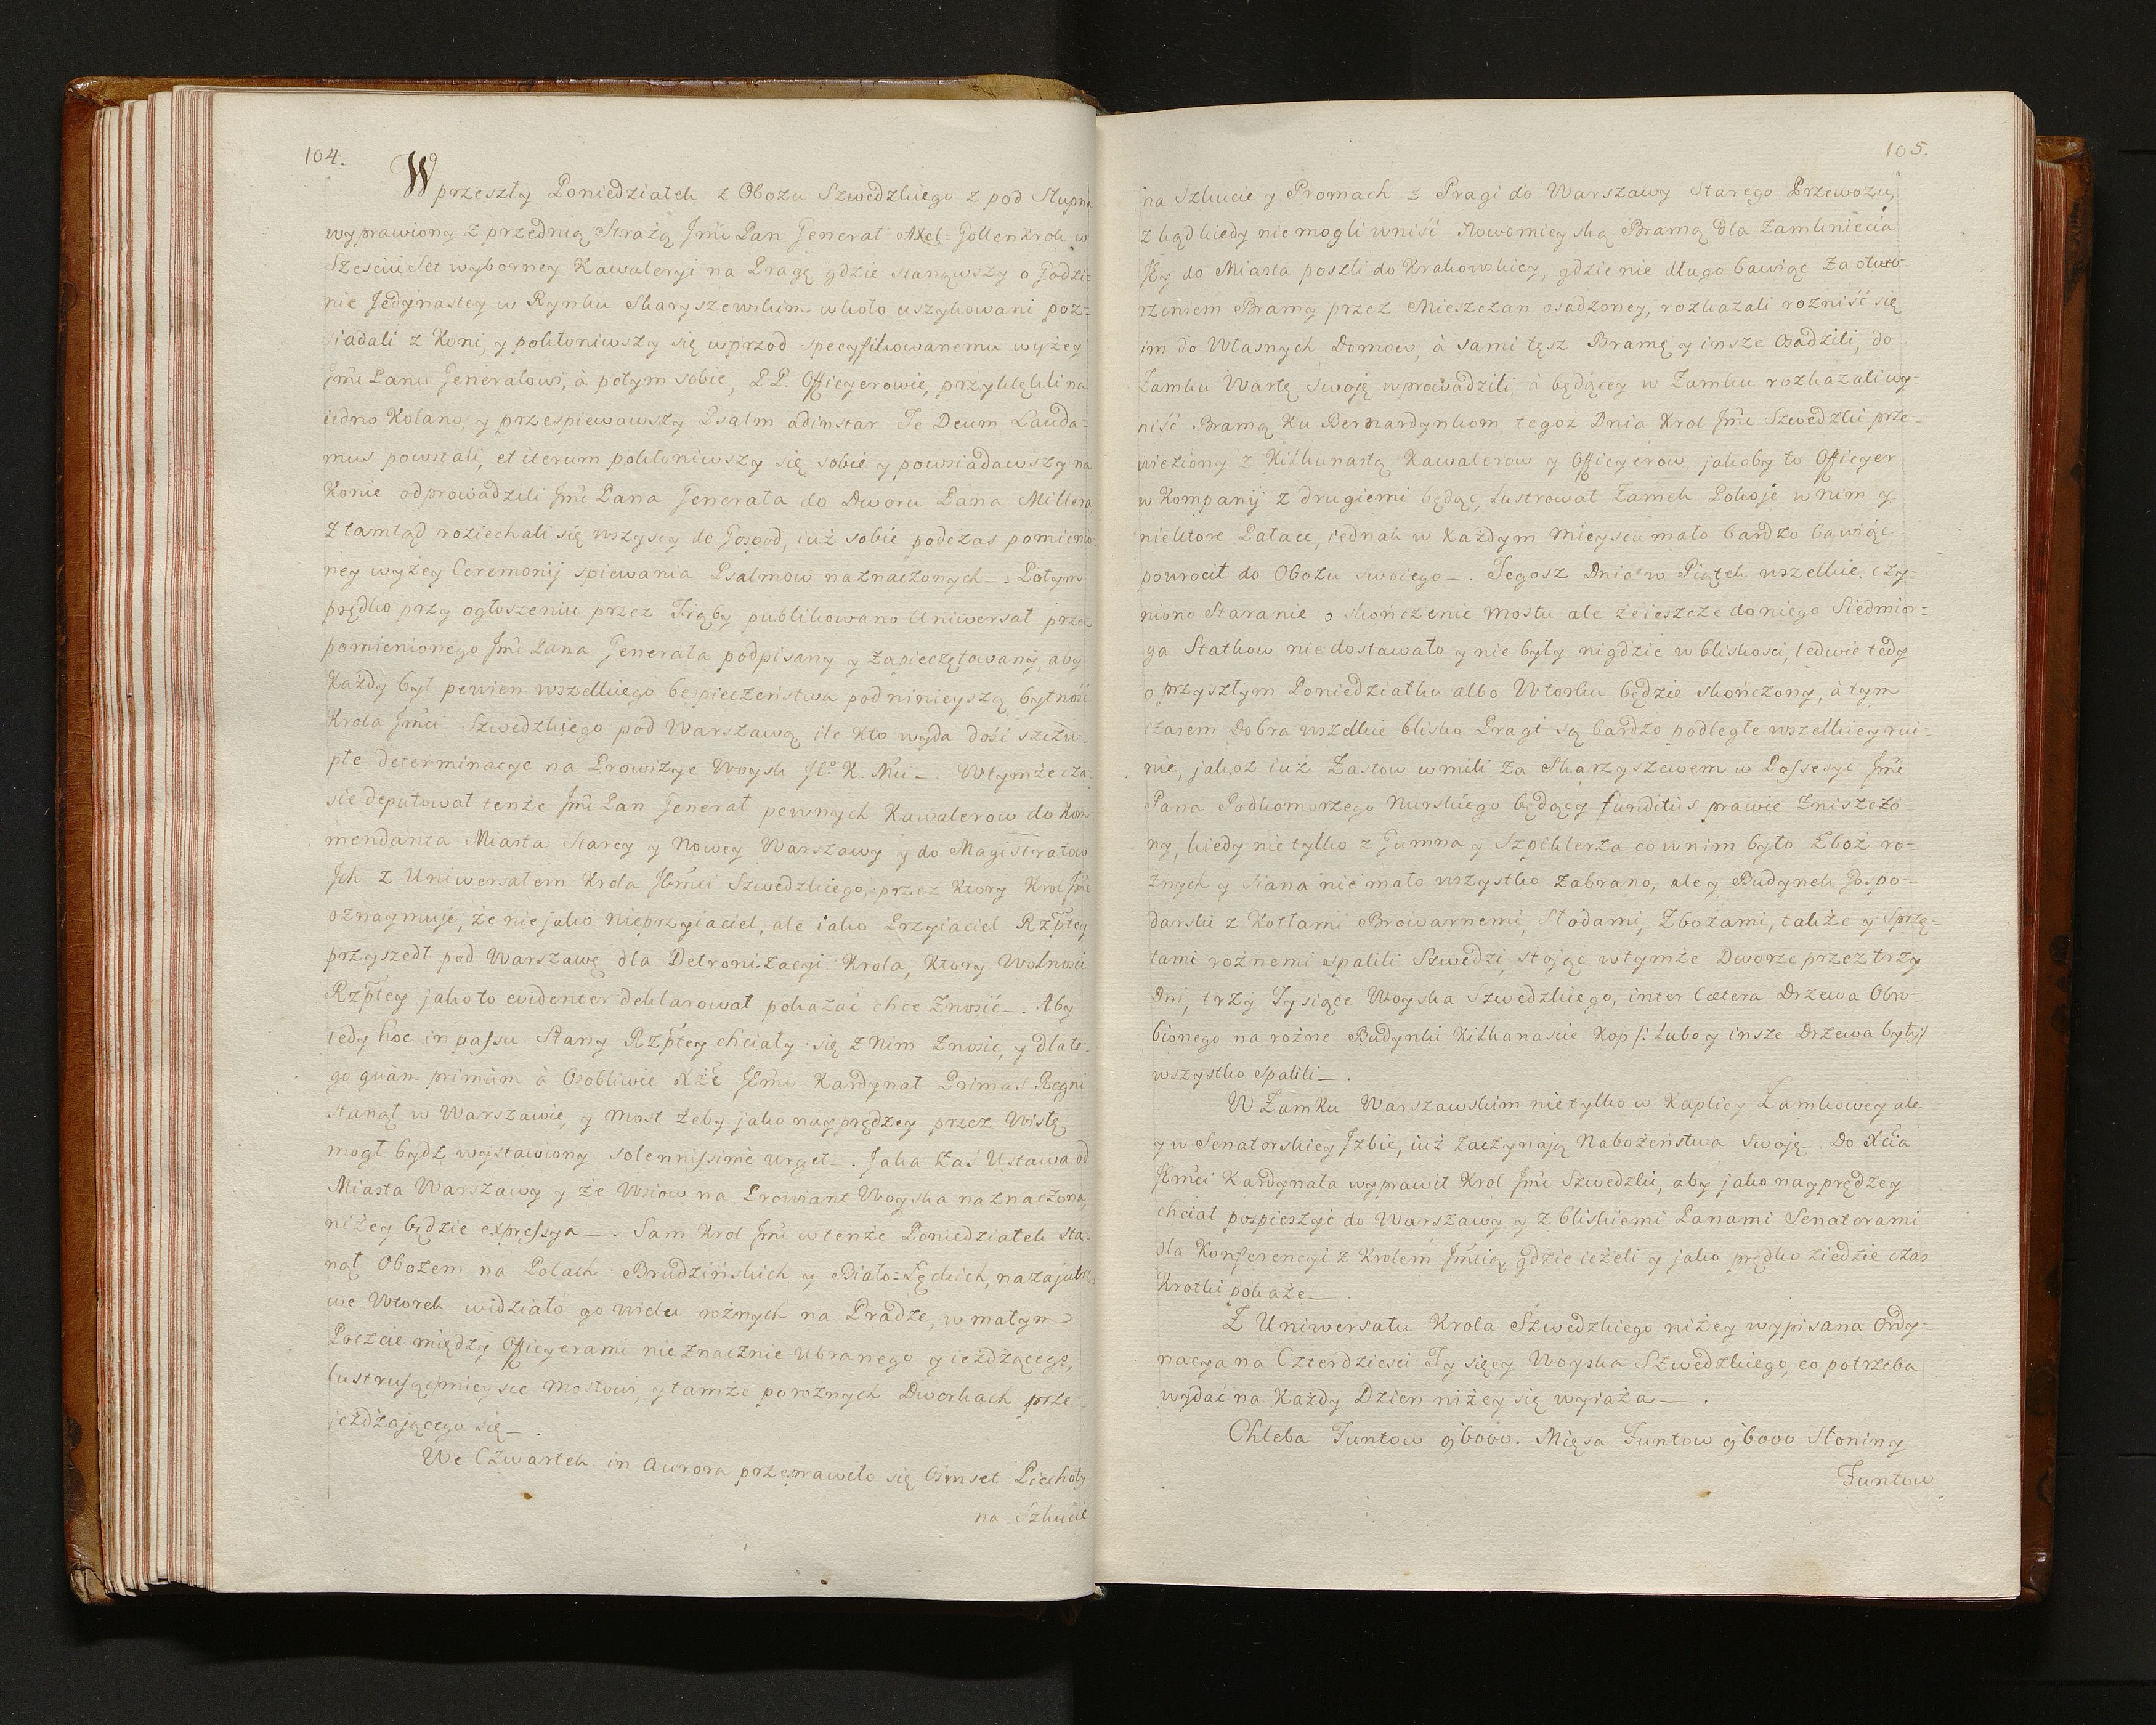 104.
W przeszły Poniedziałek z Obozu Szwedzkiego z pod Słupna
wyprawiony z przednią Strażą Jmć Pan Generał Axel=Gollenkrok w
Sześciu Set wyborney Kawaleryi na Pragę, gdzie stanąwszy o Godzi-
nie Jedynastey w Rynku Skaryszewskim wkoło uszykowani poz=
siadali z Koni, y pokłoniwszy się wprzod specyfikowanemu wyżey
Jmć Panu Generałowi, à potym sobie, P.P. Officyerowie, przyklękli na
iedno Kolano, y przespiewawszy Psalm adinstar Te Deum Lauda=
mus powstali, et iterum pokłoniwszy się sobie y powsiadawszy na
Konie odprowadzili Jmć Pana Generała do Dworu Pana Millera
z tamtąd roziechali się wszyscy do Gospod, iuż sobie podczas pomienio-
ney wyżey Ceremonij spiewania Psalmow naznaczonych—: Potym
prędko przy ogłoszeniu przez Trąby publikowano Uniwersał przez
pomienionego Jmć Pana Generała podpisany y zapieczętowany, aby
Każdy był pewien wszelkiego bespieczeństwa pod ninieyszą bytność
Krola Jmći Szwedzkiego pod Warszawą ile Kto wyda dość szczu-
płe determinacye na Prowizye Woysk Jo. K. Mći—. W tymże cza-
sie deputował tenże Jmć Pan Generał pewnych Kawalerow do Kom-
mendanta Miasta Starey y Nowey Warszawy y do Magistratow
Jch z Uniwersałem Krola Jmći Szwedzkiego, przez Ktory Krol Jmć
oznaymuje, że nie jako nieprzyiaciel, ale iako Przyiaciel Rzptey
przyszedł pod Warszawę dla Detronizacyi Krola, Ktory Wolności
Rzptey jako to evidenter deklarował pokazać chce znosić—. Aby
tedy hoc in passu Stany Rzptey chciały się z Nim znosić, y dlate-
go quàm primùm à Osobliwie Xże Jmć Kardynał Primas Regni
stanął w Warszawie, y Most żeby jako nayprędzey przez Wisłę
mogł bydź wystawiony solennissimè urget—. Jaka zaś Ustawa od
Miasta Warszawy y że Wsiow na Prowiant Woyska naznaczona,
niżey będzie expressya—. Sam Krol Jmć w tenże Poniedziałek sta-
nął Obozem na Polach Brudzińskich y Biało=Łęckich, nazajutrz
we Wtorek widziało go wielu rożnych na Pradze, w małym
Poczcie między Officyerami nie znacznie ubranego y ieżdżącego,
lustrując mieysce Mostowi, y tamże po rożnych Dworkach prze-
jeżdżającego się—.
We Czwartek in Aurora przeprawiło się Osmset Piechoty
na Szkucie
105.
na Szkucie y Promach z Pragi do Warszawy Starego Przewozu,
zkąd kiedy nie mogli wniść Nowomieyską Bramą dla zamknięcia
Jey do Miasta poszli do Krakowskiey, gdzie nie długo bawiąc za otwo-
rzeniem Bramy przez Mieszczan osadzoney, rozkazali rozniść się
im do Własnych Domow, à sami tęsz Bramę y insze osadzili, do
Zamku Wartę swoję wprowadzili, à będącey w Zamku rozkazali wy-
niść Bramą Ku Bernardynkom, tegoż Dnia Krol Jmć Szwedzki prze-
wieziony z Kilkunastą Kawalerow y Officyerow jakoby to Officyer
w Kompanij z drugiemi będąc, lustrował Zamek Pokoje w nim y
niektore Pałace, iednak w każdym mieyscu mało bardzo bawiąc
powrocił do Obozu swoiego—. Tegosz Dnia w Piątek wszelkie czy-
niono Staranie o skończenie mostu ale że ieszcze do niego Siedmior-
ga Statkow nie dostawało y nie były nigdzie w bliskości, ledwie tedy
o przyszłym Poniedziałku albo Wtorku będzie skończony, à tym
czasem Dobra wszelkie blisko Pragi są bardzo podległe wszelkiey rui-
nie, jakoż iuż Zastow w mili za Skarzyszewem w Possesyi Jmć
Pana Podkomorzego Nurskiego będący funditùs prawie zniszczo-
ny, kiedy nie tylko z Gumna y Szpiklerza co w nim było Zboż ro-
żnych y Siana nie mało wszystko zabrano, ale y Budynek Gospo-
darski z Kotłami Browarnemi, Słodami, Zbożami, także y Sprzę-
tami rożnemi spalili Szwedzi, stojąc w tymże Dworze przez trzy
Dni, trzy Tysiące Woyska Szwedzkiego, inter Cætera Drzewa Obro-
bionego na rożne Budynki Kilkanascie Kop /: lubo y insze Drzewa były :/
wszystko spalili—.
W Zamku Warszawskim nie tylko w Kaplicy Zamkowey ale
y w Senatorskiey Jzbie, iuż zaczynają Nabożeństwa swoję. Do Xcia
Jmći Kardynała wyprawił Krol Jmć Szwedzki, aby jako nayprędzey
chciał pospieszyć do Warszawy y z bliskiemi Panami Senatorami
dla Konferencyi z Krolem Jmścią, gdzie ieżeli y jako prędko ziedzie czas
Krotki pokaże—.
Z Uniwersału Krola Szwedzkiego niżey wypisana Ordy-
nacya na Czterdziesci Tysięcy Woyska Szwedzkiego, co potrzeba
wydać na każdy Dzien niżey się wyraża—.
Chleba Funtow 96000. Mięsa Funtow 96000 Słoniny
Funtow